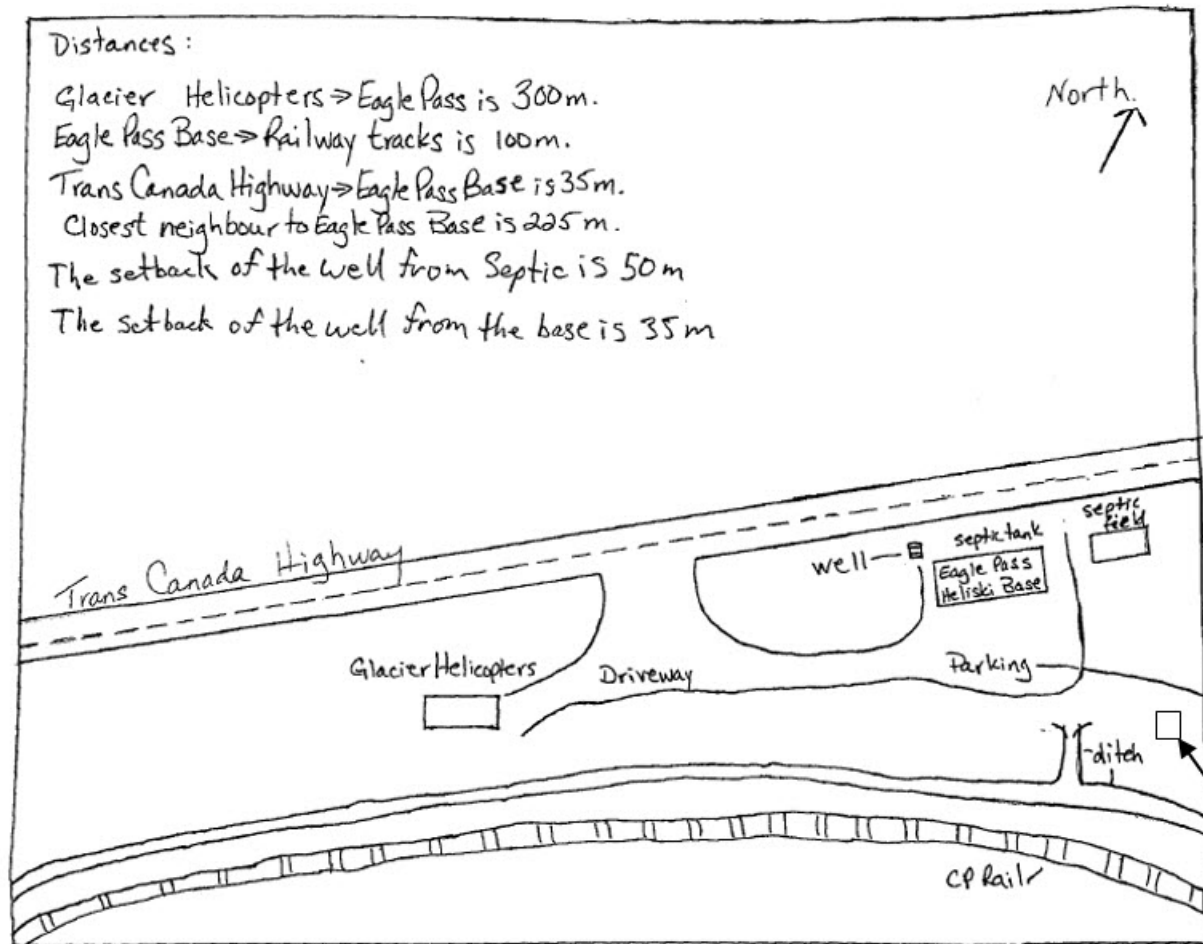 Distances:
Glacier Helicopters⇒Eagle Pass is 300m.
Eagle Pass Base⇒Railway tracks is 100m.
Trans Canada Highway⇒Eagle Pass Base is 35m.
Closest neighbour to Eagle Pass Base is 225m.
The setback of the well from Septic is 50m
The setback of the well from the base is 35m
North.
Trans Canada Highway
septic field
septic tank
well
Eagle Pass
Heliski Base
Glacier Helicopters
Driveway
Parking
ditch
CP Rail